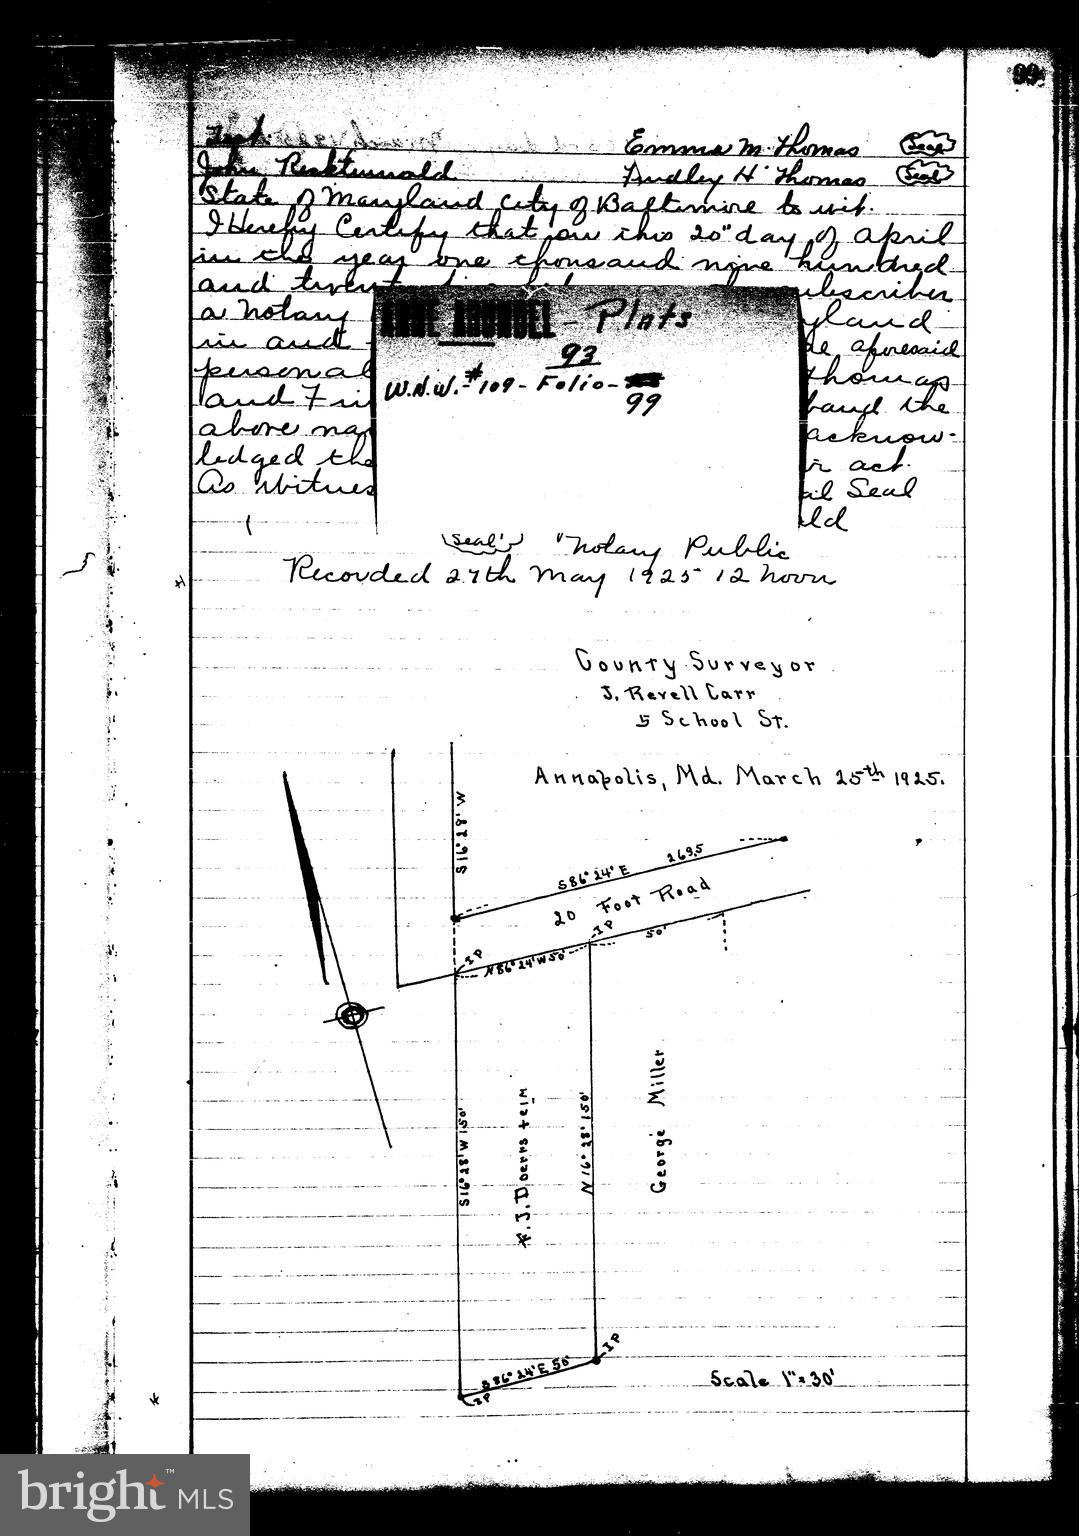 99
Test.
Emma M. Thomas (Seal)
John Dudley H. Thomas (Seal)
State of Maryland City of Baltimore to wit.
I Hereby Certify that on this 20" day of April
in the year one thousand nine hundred
and subscriber
a Notary
in and aforesaid
personal Thomas
and the
above acknow-
ledged the act.
As Seal
ANNE ARUNDEL - Plats
93
W.N.W. - # 109 - Folio -
99
(Seal) Notary Public
Recorded 27th May 1925 12 noon
County Surveyor
J. Revell Carr
5 School St.
Annapolis, Md. March 25th 1925.
S 16° 28' W
S 86° 24' E 269.5
20 Foot Road
IP
IP
N 86° 24' W 50'
50'
S 16° 28' W 150'
J. Doerrstein
N 16° 28' 150'
George Miller
IP
S 86° 24' E 50'
IP
Scale 1" = 30'
bright™ MLS